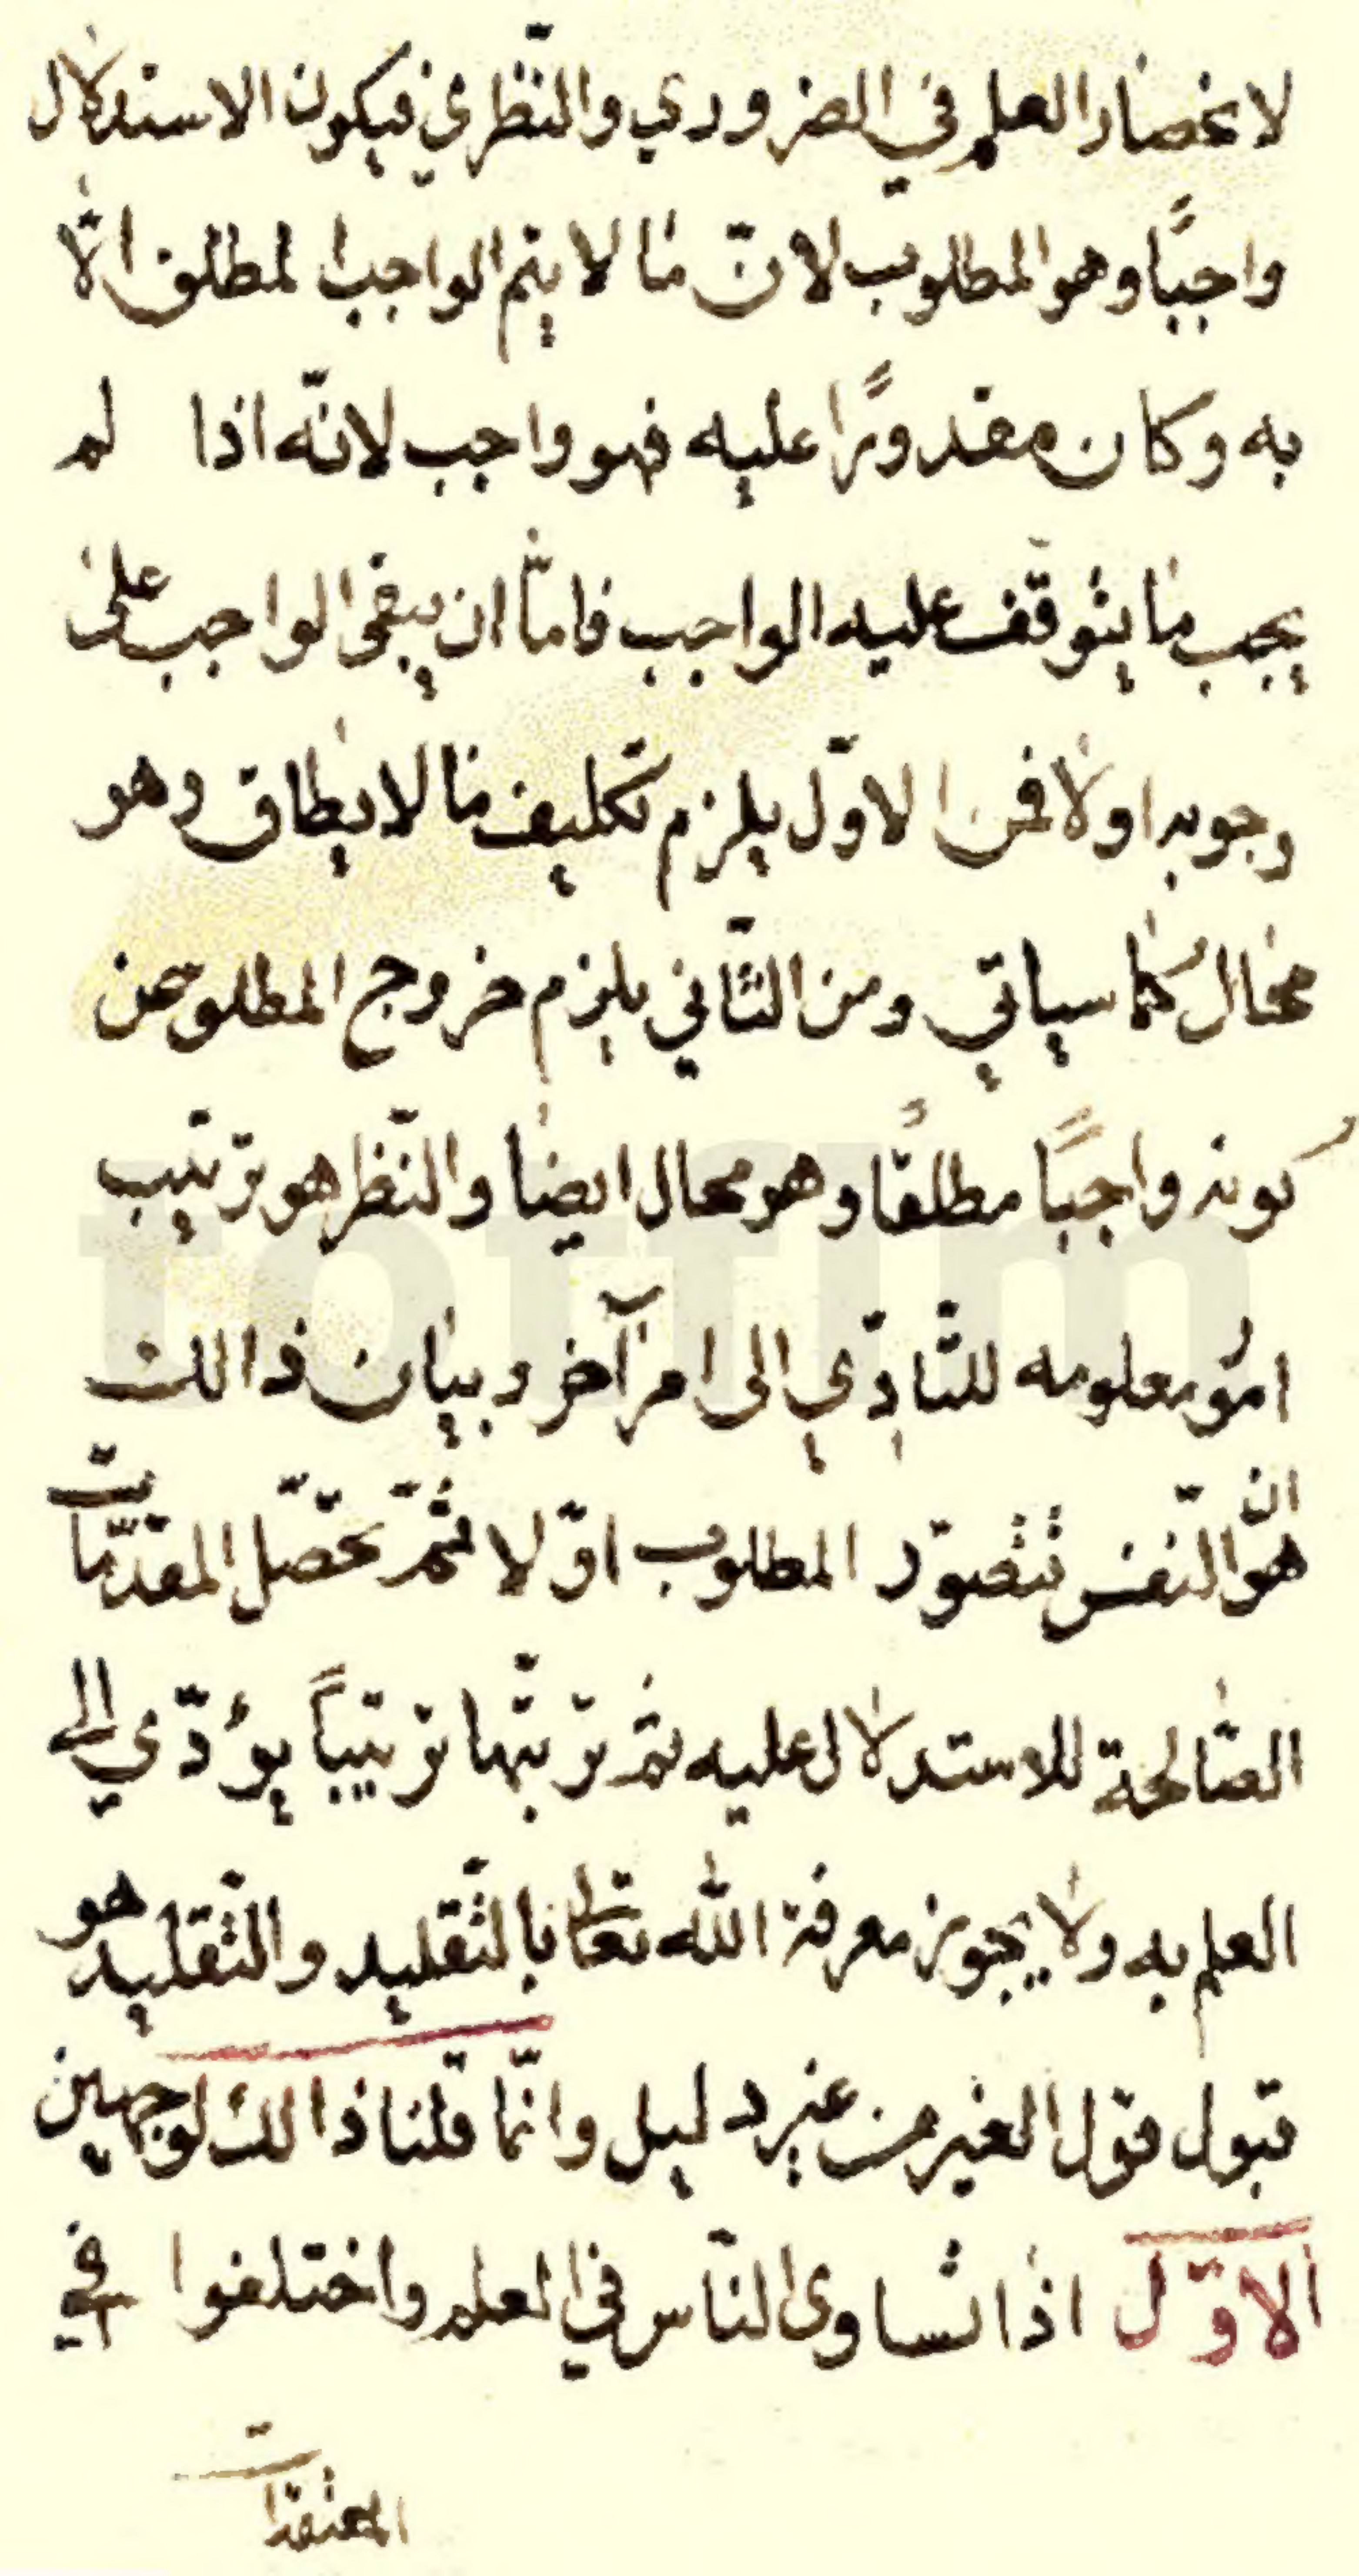 لانحصار العلم في الضروري والنّظري فيكون الاستدلال
واجبًا وهو المطلوب لانّ ما لا يتم الواجب المطلق الّا
به وكان مقدورًا عليه فهو واجب لانّه اذا لم
يجب ما يتوقّف عليه الواجب فامّا ان يبقى الواجب على
وجوبه اولا فمن الاوّل يلزم تكليف ما لا يطاق وهو
محالُ كما سياتي ومن الثّاني يلزم خروج المطلوب عن
كونه واجبًا مطلقًا وهو محال ايضا والنّظر هو ترتيب
امُور معلومه للتّادّي الى امر آخر وبيان ذالك
هو انّ النّفس تتصوّر المطلوب اوّلا ثمّ تحصّل المقدّمات
الصّالحة للاستدلال عليه ثم ترتّبها ترتيباً يؤدّي الى
العلم به ولا يجوز معرفة الله تعالى بالتّقليد والتّقليد هو
قبول قول الغير من غير دليل وانّما قلنا ذالك لوجهين
الاوّل اذا تساوى النّاس في العلم واختلفوا في
المعتقدات